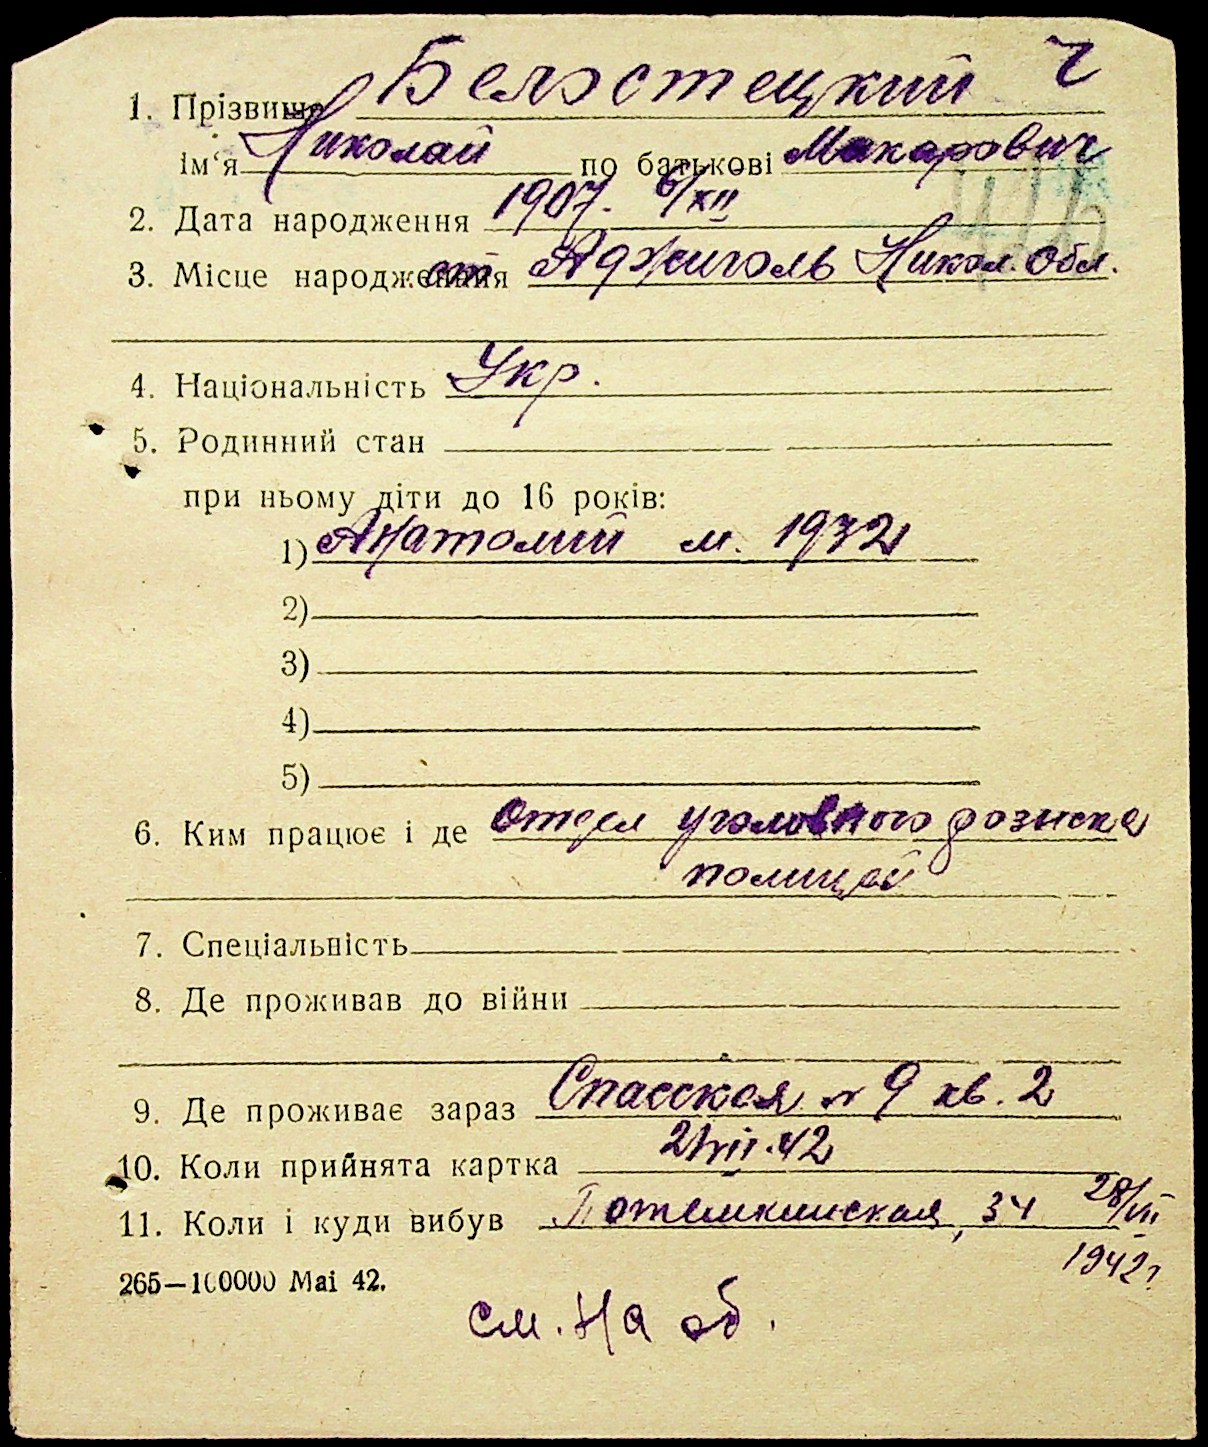 Ч
1. Прізвище Белостецкий
ім‘я Николай по батькові Макарович
2. Дата народження 1907. 6/XII
3. Місце народження ст Аджиголь Никол. обл.
4. Національність Укр.
5. Родинний стан
при ньому діти до 16 років:
1) Анатолий м. 1932
2)
3)
4)
5)
6. Ким працює і де Отдел уголовного розыска
полицай
7. Спеціальність
8. Де проживав до війни
9. Де проживає зараз Спасская № 9 кв. 2
10. Коли прийнята картка 42
11. Коли і куди вибув Потемкинская, 34 28/VII
1942г
265—100000 Mai 42.
см. на об.